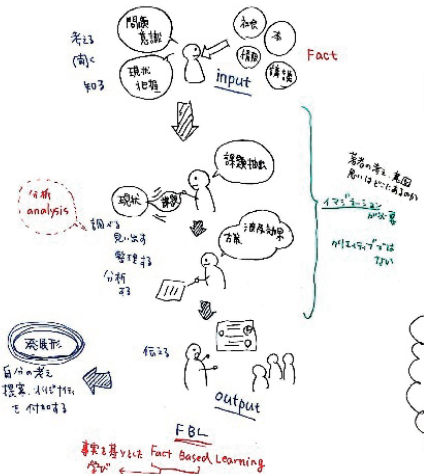 考える
聞く
知る
問題
意識
現状
把握
社会
本
情報
講義
Fact
input
課題抽出
現状
課題
分析
analysis
調べる
見い出す
整理する
分析
する
方策
波及効果
著者の考え、意図
思いはどこにあるのか
イマジネーション
が必要
クリエイティブでは
ない
伝える
発展形
自分の考え
提案、オリジナリティ
を付加する
output
FBL
事実を基にした Fact Based Learning
学び